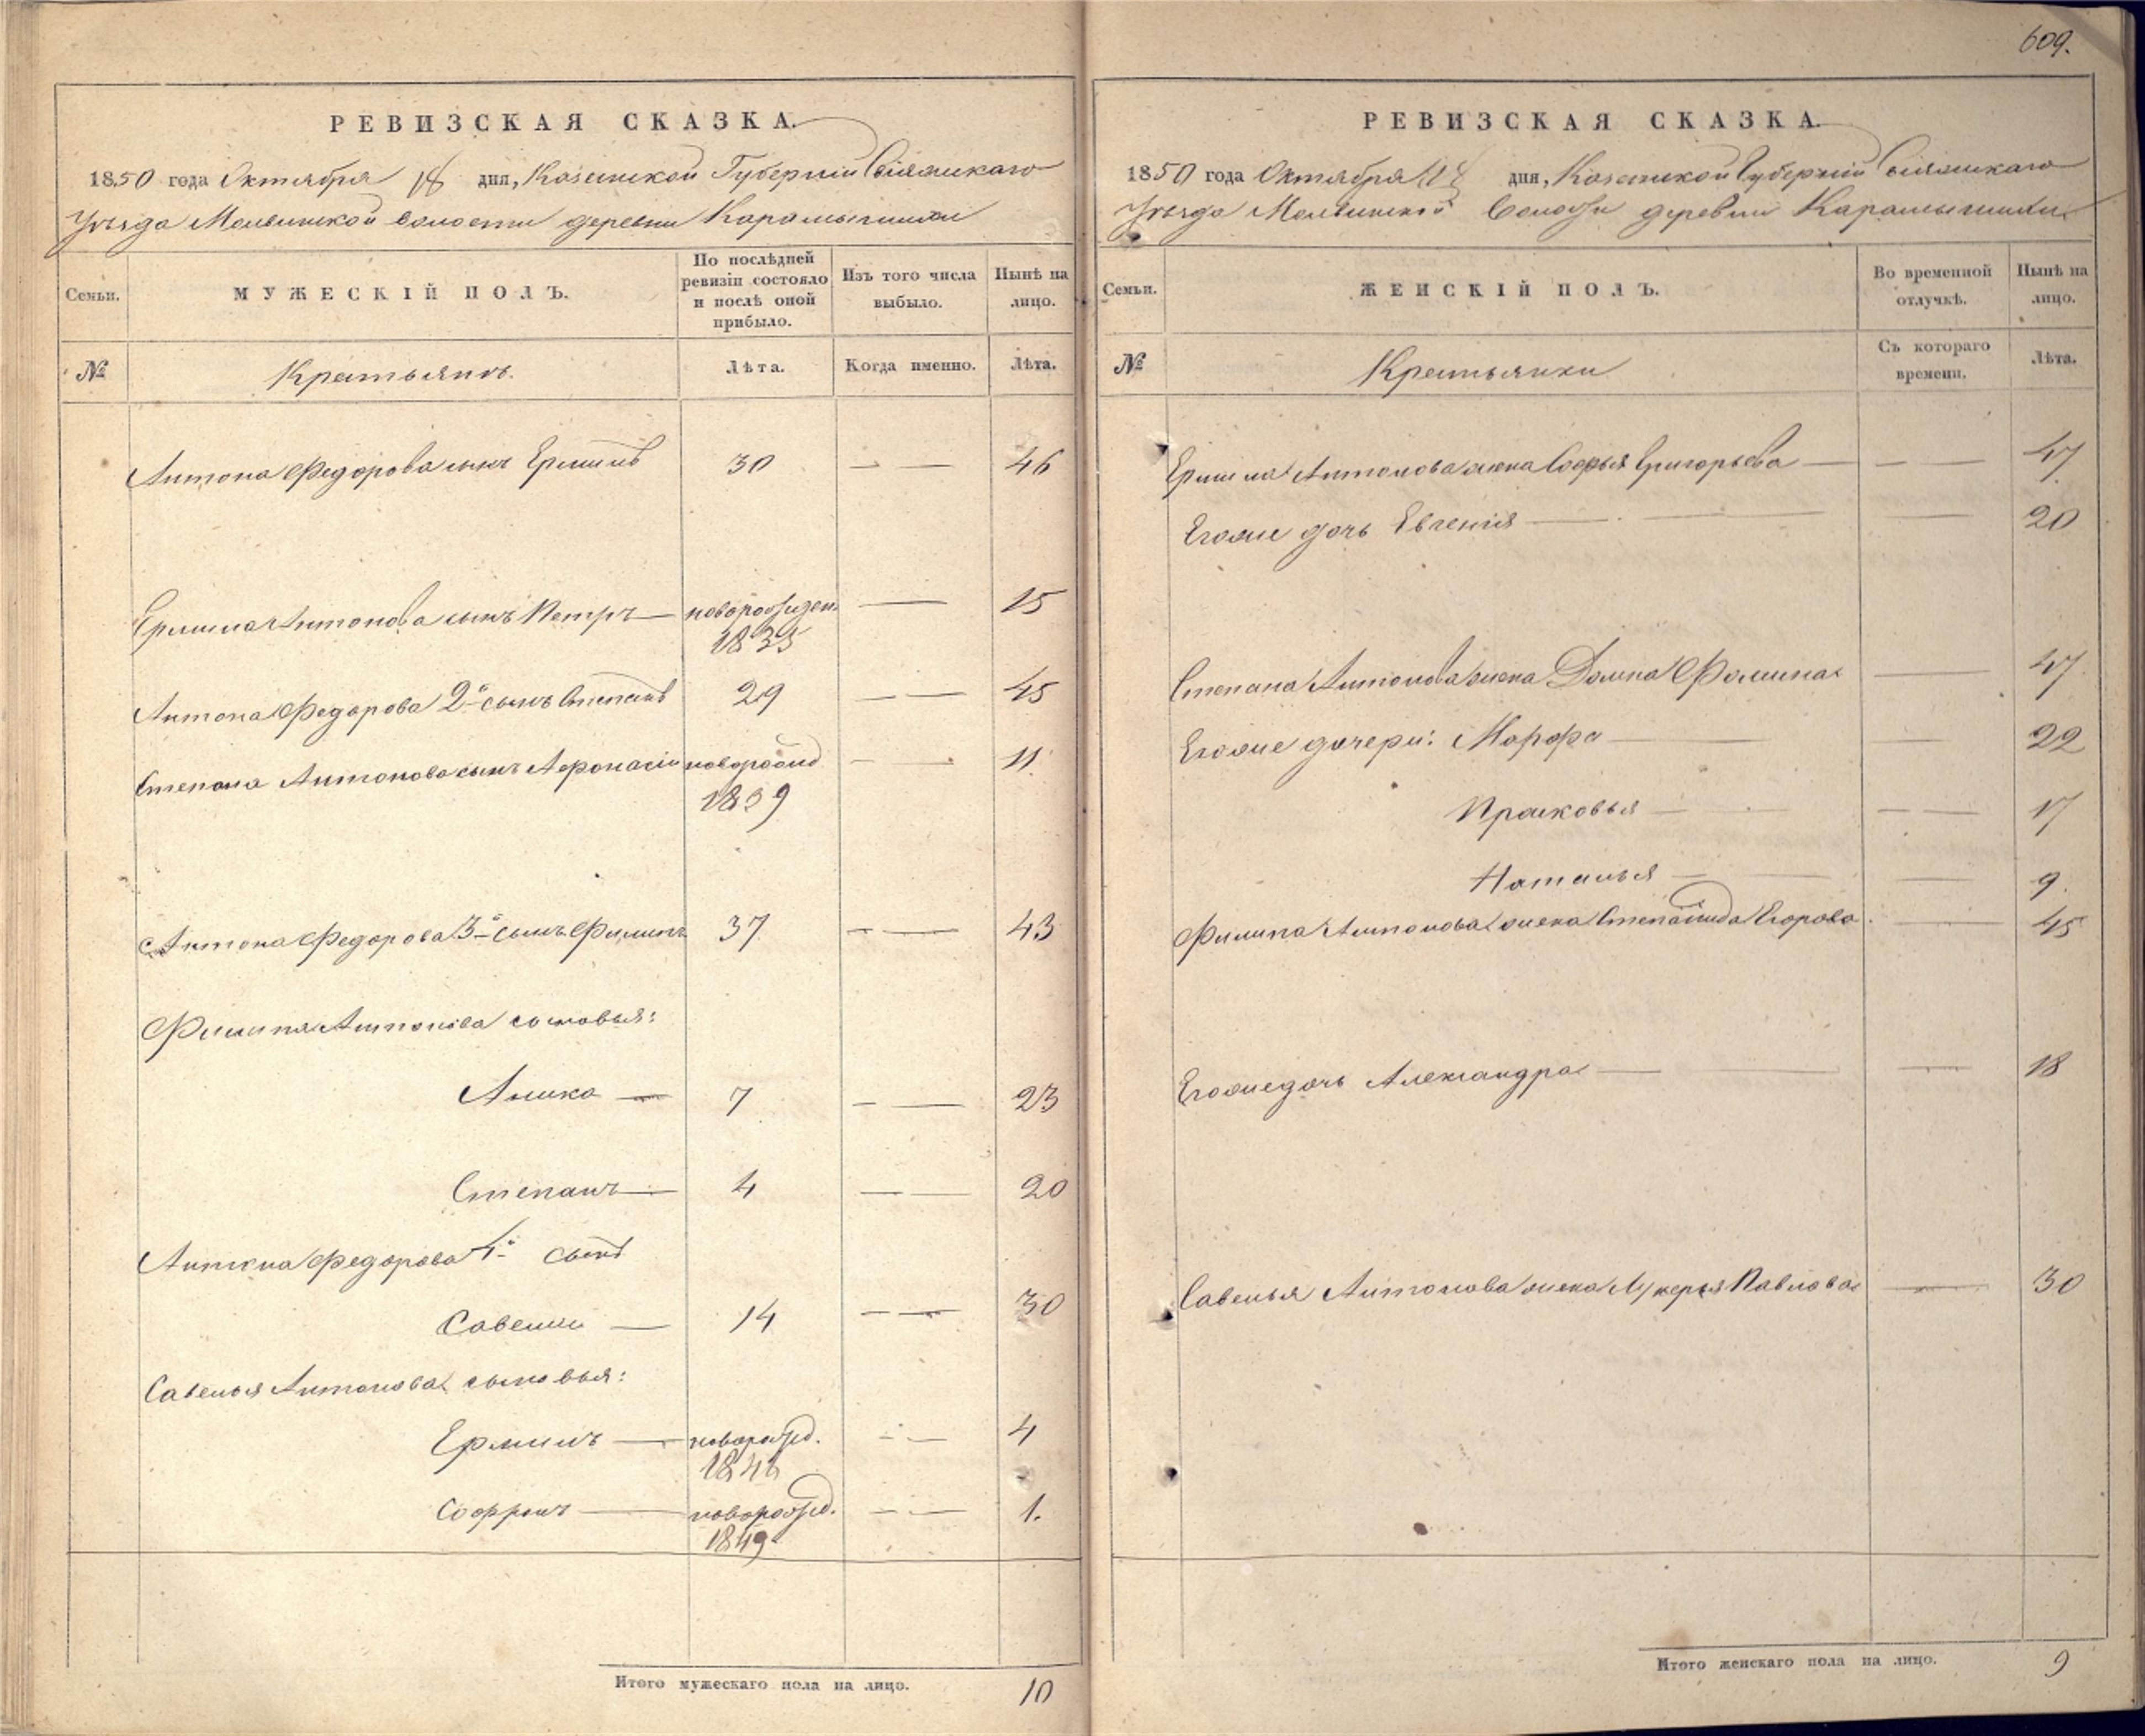 609.
РЕВИЗСКАЯ СКАЗКА.
1850 года Октября 18 дня, Казанской Губернии Свіяжскаго
Уѣзда Молвинской волости деревни Карамышихи
Семьи.
МУЖЕСКІЙ ПОЛЪ.
По послѣдней ревизіи состояло и послѣ оной прибыло.
Изъ того числа выбыло.
Нынѣ на лицо.
№
Крестьянъ.
Лѣта.
Когда именно.
Лѣта.
Антона Федорова сынъ Ермилъ 30 — — 46
Ермила Антонова сынъ Петръ — новорожден. — 15
1835
Антона Федорова 2й сынъ Степанъ 29 — — 45
Степана Антонова сынъ Афонасій новорожд — 11.
1839
Антона Федорова 3й сынъ Филипъ 37 — — 43
Филипа Антонова сыновья:
7 — — 23
Степанъ — 4 — — 20
Антона Федорова 4й сынъ
Савелій — 14 — — 30
Савелья Антонова сыновья:
Ермилъ — новорожд. — — 4
1846
Софронъ — новорожд. — — 1.
1849
Итого мужескаго пола на лицо. 10
РЕВИЗСКАЯ СКАЗКА.
1850 года Октября 18 дня, Казанской Губерніи Свіяжскаго
Уѣзда Молвинской Волости деревни Карамышихи
Семьи.
ЖЕНСКІЙ ПОЛЪ.
Во временной отлучкѣ.
Нынѣ на лицо.
№
Крестьянки
Съ котораго времени.
Лѣта.
Ермила Антонова жена Софья Григорьева — — — 47
Егоже дочь Евгенія — — — 20
Степана Антонова жена Домна Фомина — 47
Егоже дочери: Марфа — — — 22
Прасковья — — — 17
Наталья — — — 9.
Филипа Антонова жена Степанида Егорова — 45
Егоже дочь Александра — — — 18
Савелья Антонова жена Лукерья Павлова — 30
Итого женскаго пола на лицо. 9